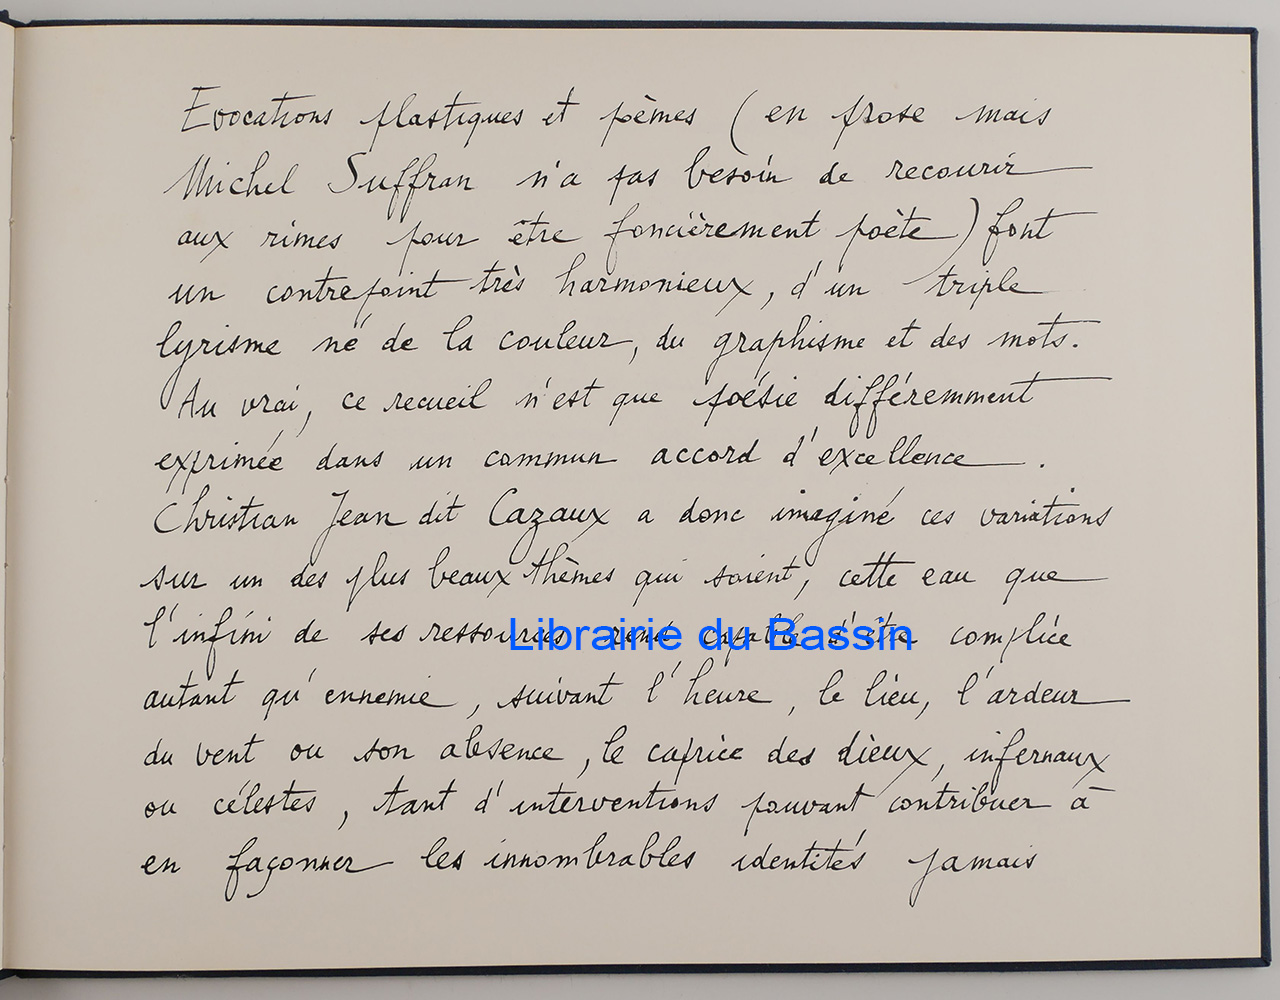 Evocations plastiques et pèmes (en prose mais
Michel Suffran n'a pas besoin de recourir
aux rimes pour être foncièrement poète) font
un contrepoint très harmonieux, d'un triple
lyrisme né de la couleur, du graphisme et des mots.
Au vrai, ce recueil n'est que poésie différemment
exprimée dans un commun accord d'excellence.
Christian Jean dit Cazaux a donc imaginé ces variations
sur un des plus beaux thèmes qui soient, cette eau que
l'infini de ses ressources rend capable d'être complice
Librairie du Bassin
autant qu'ennemie, suivant l'heure, le lieu, l'ardeur
du vent ou son absence, le caprice des dieux, infernaux
ou célestes, tant d'interventions pouvant contribuer à
en façonner les innombrables identités jamais